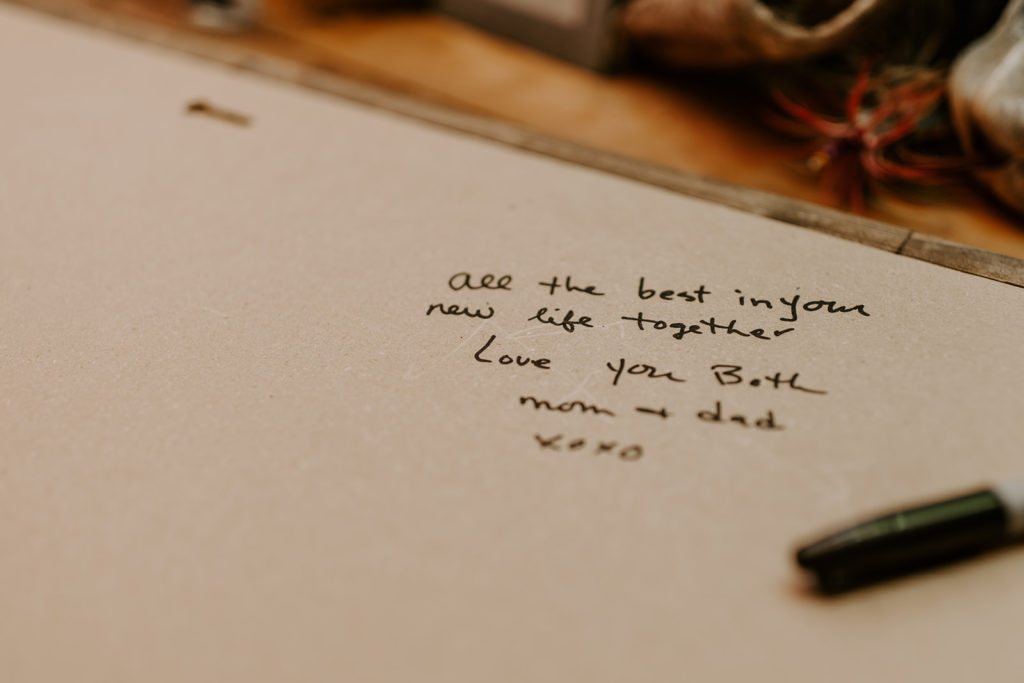 all the best in your
new life together
Love you Both
mom + dad
xoxo